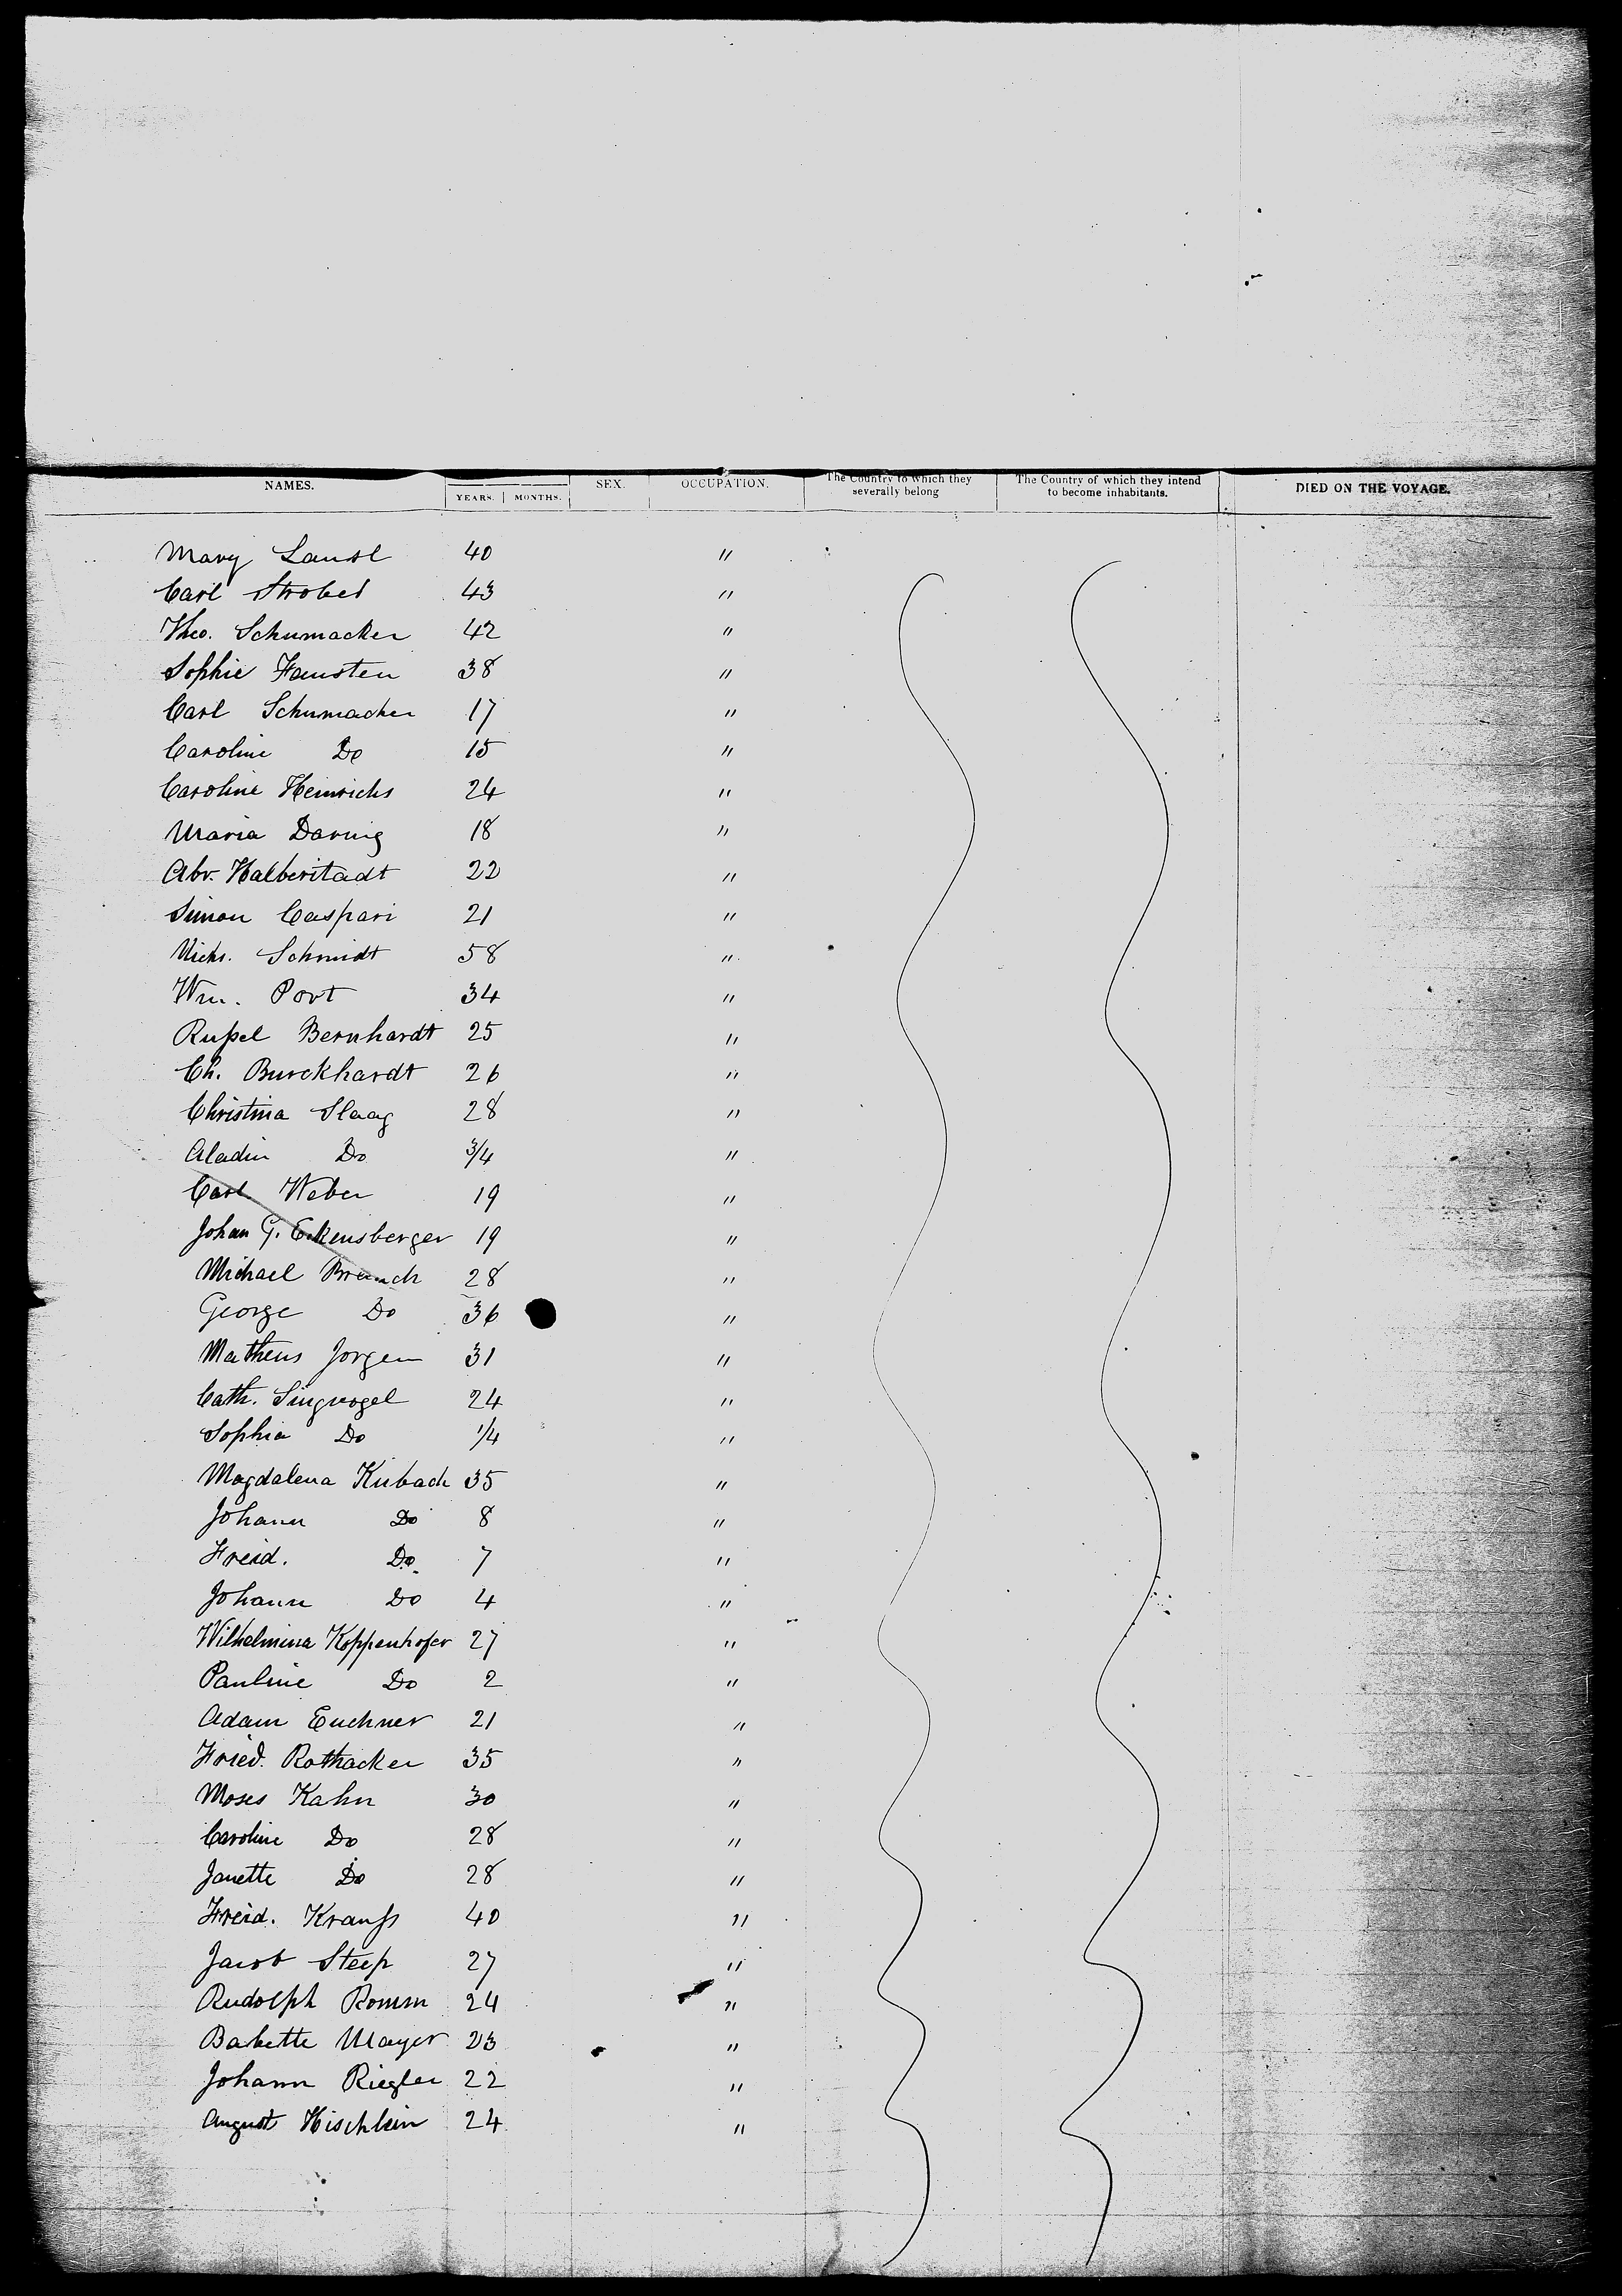 NAMES. YEARS. MONTHS. SEX. OCCUPATION. The Country to which they severally belong The Country of which they intend to become inhabitants. DIED ON THE VOYAGE.
Mary 40 "
Carl Strobel 43 "
Theo. Schumacker 42 "
Sophie Fausten 38 "
Carl Schumacker 17 "
Caroline Do 15 "
Caroline Heinrichs 24 "
Maria Daring 18 "
Abr. Halberstadt 22 "
Simon Caspari 21 "
Nichs. Schmidt 58 "
Wm. Port 34 "
Rußel Bernhardt 25 "
Ch. Burckhardt 26 "
Christina Slaag 28 "
Aladin Do 3/4 "
Carl Weber 19 "
Johan G. Eckensberger 19 "
Michael Braunch 28 "
George Do 36 "
Matheus Jorgen 31 "
Cath. Singvogel 24 "
Sophia Do 1/4 "
Magdalena Kubach 35 "
Johann Do 8 "
Freid. Do 7 "
Johann Do 4 "
Wilhelmina Koppenhofer 27 "
Pauline Do 2 "
Adam Euchner 21 "
Fried. Rothacker 35 "
Moses Kahn 30 "
Caroline Do 28 "
Janette Do 28 "
Freid. Krauß 40 "
Jacob Steep 27 "
Rudolph Romm 24 "
Babette Mayer 23 "
Johann Riegler 22 "
August Hischlein 24 "